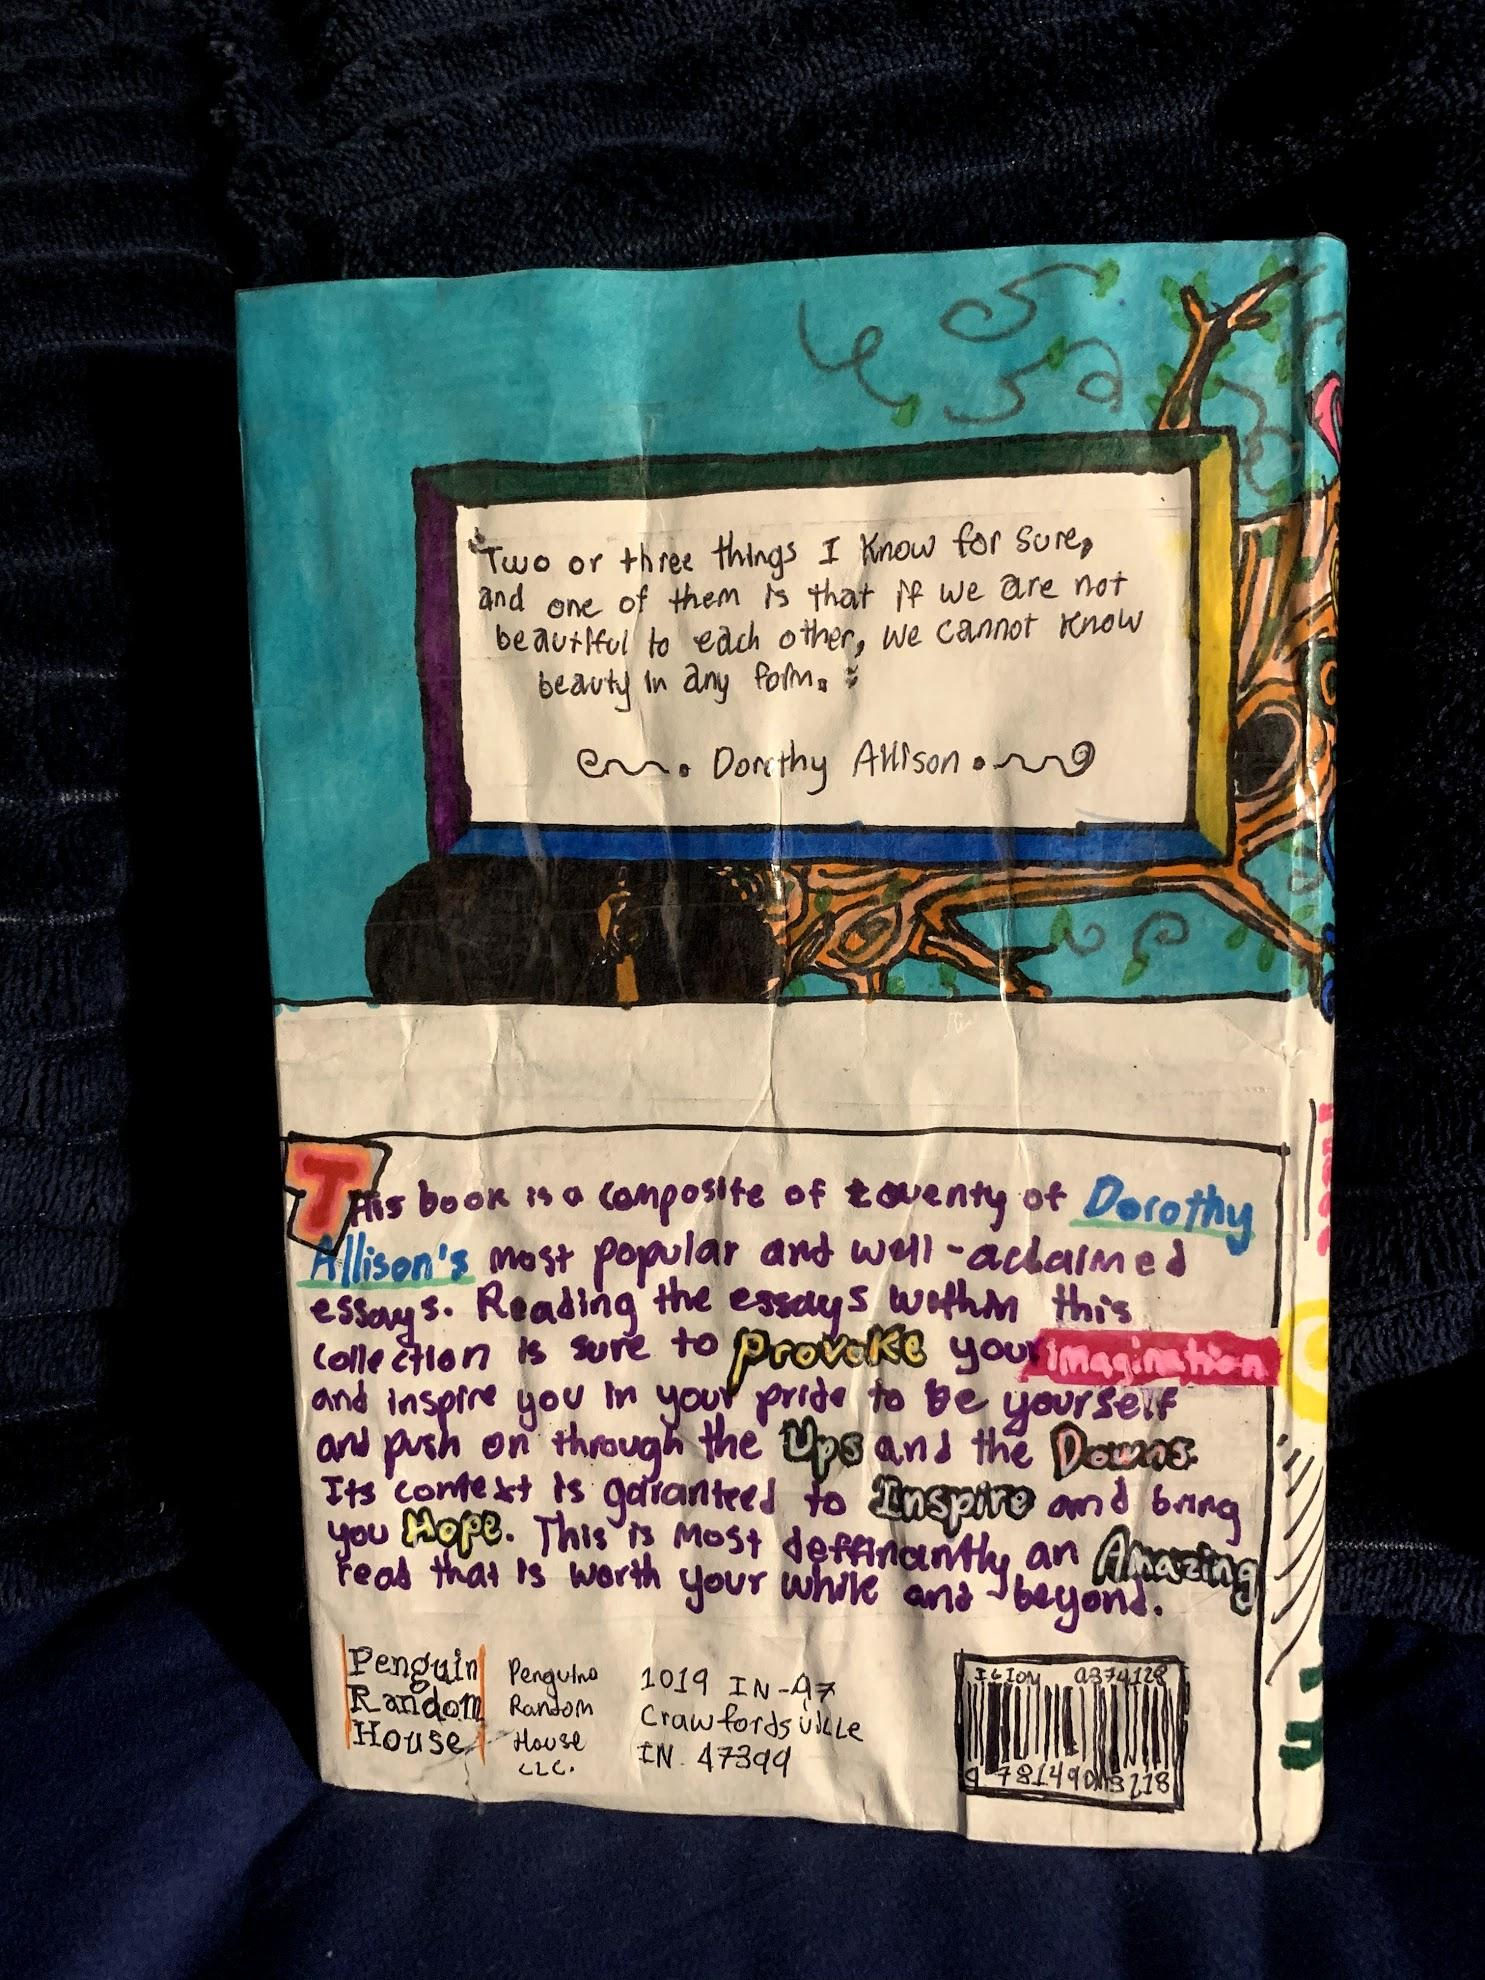 "Two or three things I know for sure,
and one of them is that if we are not
beautiful to each other, we cannot know
beauty in any form."
Dorothy Allison
This book is a composite of twenty of Dorothy
Allison's most popular and well-aclaimed
essays. Reading the essays within this
collection is sure to provoke your imagination
and inspire you in your pride to be yourself
and push on through the Ups and the Downs.
Its context is garanteed to Inspire and bring
you Hope. This is most deffinantly an Amazing
read that is worth your while and beyond.
Penguin
Random
House
Penguino
Random
House
LLC.
1019 IN-47
Crawfordsville
IN. 47399